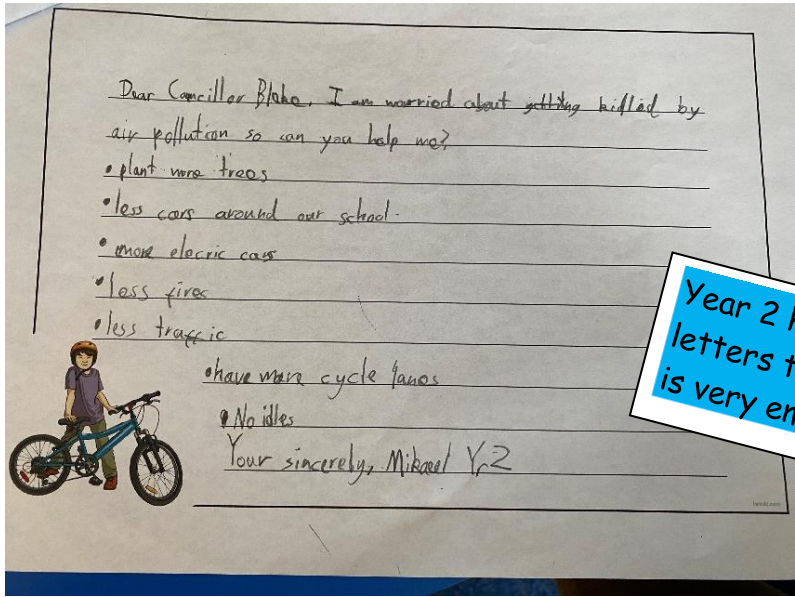 Dear Councillor Blake, I am worried about getting killed by
air pollution so can you help me?
• plant more trees
• less cars around our school.
• more elecric cars
• less fires
• less traffic
• have more cycle lanes
• No idles
Your sincerely, Mikaeel Yr2
Year 2 h
letters t
is very en
twinkl.com